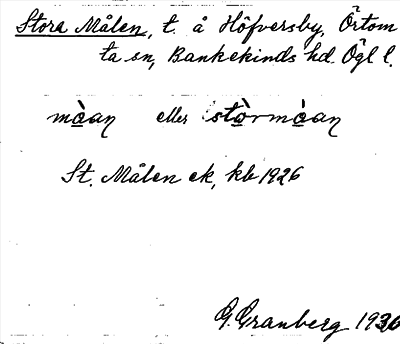 Stora Målen, t. å Höfversby, Örtom
ta sn, Bankekinds hd. Ögl l.
mà̱an eller stò̱rmà̱an
St. Målen ek, kb 1926
G. Granberg 1936